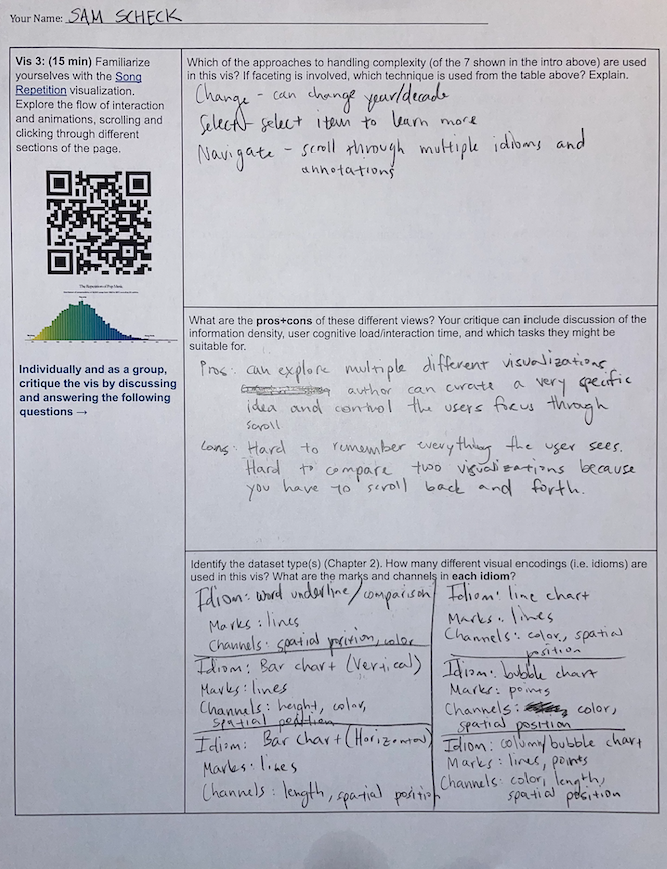 Your Name: SAM SCHECK
Vis 3: (15 min) Familiarize
yourselves with the Song
Repetition visualization.
Explore the flow of interaction
and animations, scrolling and
clicking through different
sections of the page.
The Repetition of Pop Music
Individually and as a group,
critique the vis by discussing
and answering the following
questions →
Which of the approaches to handling complexity (of the 7 shown in the intro above) are used
in this vis? If faceting is involved, which technique is used from the table above? Explain.
Change - can change year/decade
Select - select item to learn more
Navigate - scroll through multiple idioms and
annotations
What are the pros+cons of these different views? Your critique can include discussion of the
information density, user cognitive load/interaction time, and which tasks they might be
suitable for.
Pros: can explore multiple different visualizations
author can curate a very specific
idea and control the users focus through
scroll
Cons: Hard to remember everything the user sees.
Hard to compare two visualizations because
you have to scroll back and forth.
Identify the dataset type(s) (Chapter 2). How many different visual encodings (i.e. idioms) are
used in this vis? What are the marks and channels in each idiom?
Idiom: word underline/comparison
Marks: lines
Channels: spatial position, color
Idiom: Bar chart (Vertical)
Marks: lines
Channels: height, color,
spatial position
Idiom: Bar chart (Horizontal)
Marks: lines
Channels: length, spatial position
Idiom: line chart
Marks: lines
Channels: color, spatial
position
Idiom: bubble chart
Marks: points
Channels: color,
spatial position
Idiom: column/bubble chart
Marks: lines, points
Channels: color, length,
spatial position